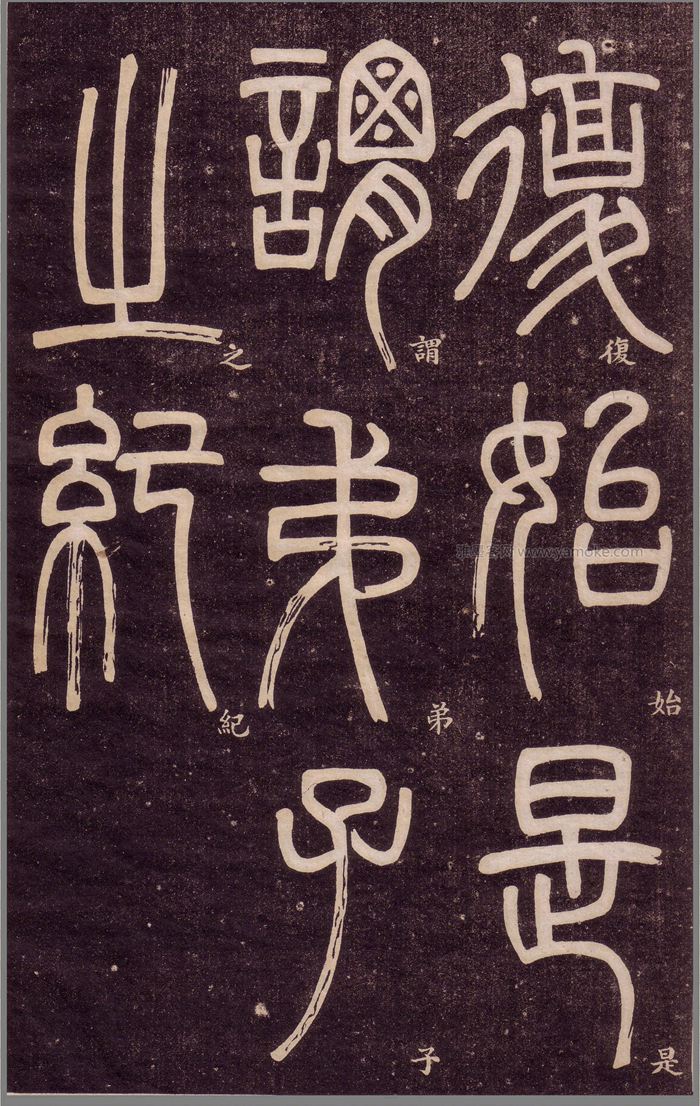 復始是
謂弟子
之紀
雅墨客网 www.yamoke.com